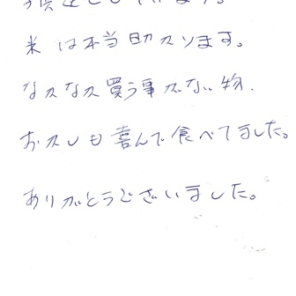 米は本当助カリます。
なカなカ買う事ガない物.
おカしも喜んで食べてました。
ありガとうございました。